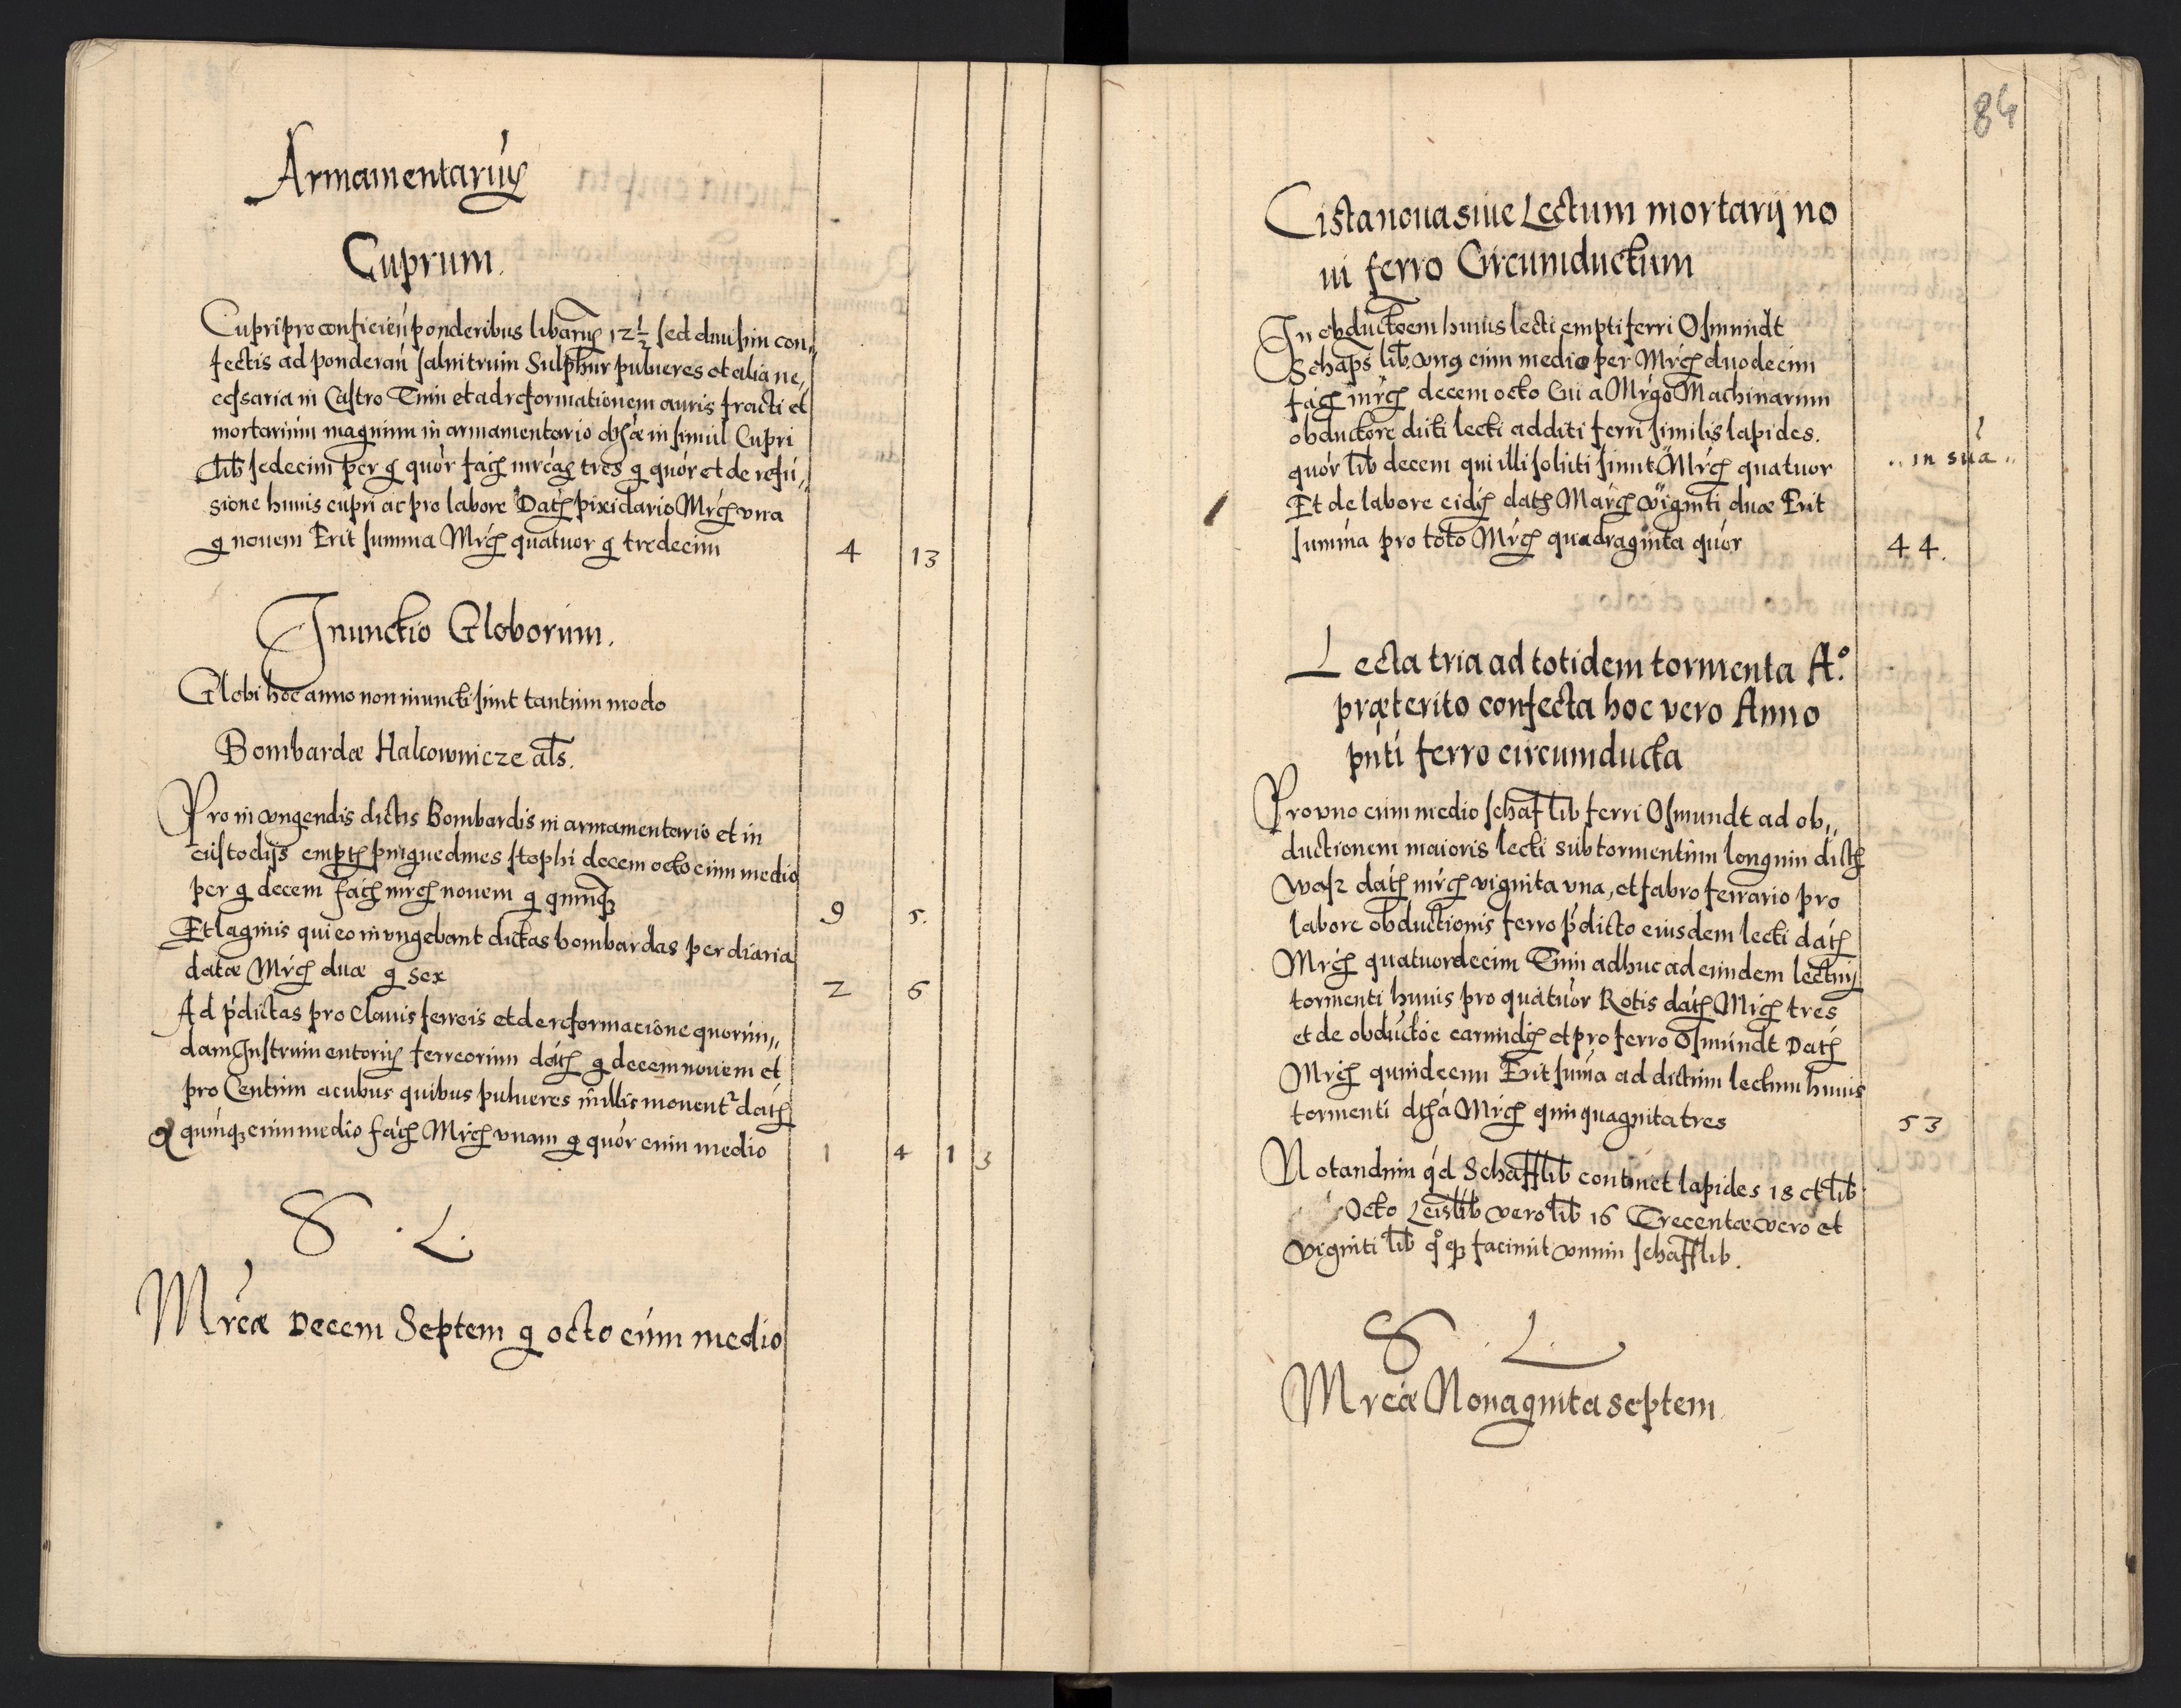 Armamentariuȝ
Cuprum.
Cupri pro conficień ponderibus libaruȝ 12½ sed duu͂ in con„
fectis ad ponderań salnitrum Sulphur pulueres et alia ne„
cessaria in Castro Tum et ad reformationem auris fracti et
mortarium magnum in armamentario in simul Cupri
lib sedecim per g̃ quór fac̃ mrcas tres g̃ quór et de refu„
sione huius cupri ac pro labore Dat̃ pixidario Mrc̃ vna
g̃ nouem Erit summa Mrc̃ quatuor g̃ tredecim 4 13
Inunctio Globorum.
Globi hoc anno non inuncti sunt tantum modo
Bombardæ Hakownicze al̃s.
Pro in vngendis dictis Bombardis in armamentario et in
custodijs empt̃ pinguedines stophi decem octo cum medio
per g̃ decem fac̃ mrc̃ nouem g̃ quinqȝ 9 5.
Et laginis qui eo invngebant dictas bombardas per diaria
datæ Mrc̃ duæ g̃ sex 2 6
Ad p̃dictas pro Clauis ferreis et de reformacione quorun„
dam Instrumentoruȝ ferreorum dat̃ g̃ decem nouem et
pro Centum acubus quibus pulueres in illis mouent² dat̃
g̃ quinqȝ cum medio fac̃ Mrc̃ vnam g̃ quór cum medio 1 4 1 3
S . L.
Mrcæ Decem Septem g̃ octo cum medio
84
Cista noua siue Lectum mortarij no
ui ferro Circumductum
In obductoem huius lecti empti ferri Osmundt
Schap̃s lib. vnꝯ cum medio per Mrc̃ duodecim
fac̃ mrc̃ decem octo Cui a Mrg̃o Machinarum
obductore dicti lecti additi ferri similis lapides.
quór lib decem qui illi soluti sunt Mrc̃ quatuor .. in sua ..
Et de labore eidȝ dat̃ Marc̃ viginti duæ Erit
summa pro toto Mrc̃ quadraginta quór 44.
Lecta tria ad totidem tormenta A.°
præterito confecta hoc vero Anno
pñti ferro circumducta
Pro vno cum medio schaf lib ferri Osmundt ad ob„
ductionem maioris lecti sub tormentum longum dict̃
wasz dat̃ mrc̃ viginta vna, et fabro ferrario pro
labore obductionis ferro p̃dicto eiusdem lecti dat̃
Mrc̃ quatuordecim Tum adhuc ad eundem lectuȝ
tormenti huius pro quatuor Rotis dat̃ Mrc̃ tres
et de obductõe earundȝ et pro ferro Osmundt Dat̃
Mrc̃ quindecim Erit suma ad dictum lectum huius
tormenti Mrc̃ quinquaginta tres 53
Notandum q́d Schafflib continet lapides 18 et lib
Octo Leislib vero lib 16 Trecentæ vero et
viginti lib q°qȝ faciunt vnum schafflib.
S . L.
Mrcæ Nonaginta septem.